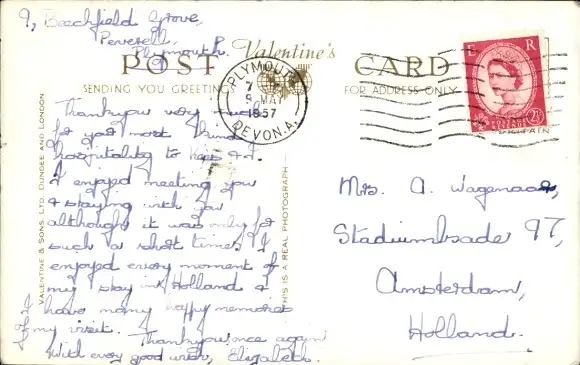 9, Beechfield Grove,
Peverell,
Plymouth.
Valentine's
POST CARD
SENDING YOU GREETINGS
FOR ADDRESS ONLY
PLYMOUTH
9 MAY
1957
DEVON.A.
E R
2½
Thankyou very much
for your most kind
hospitality to & I.
I enjoyed meeting you
& staying with you
although it was only for
such a short time. I
enjoyed every moment of
my stay in Holland &
I have many happy memories
of my visit.
Thankyou once again
With every good wish, Elizabeth.
Mrs. A. Wagenaar,
Stadiumkade 97,
Amsterdam,
Holland.
VALENTINE & SONS, LTD. DUNDEE AND LONDON
THIS IS A REAL PHOTOGRAPH